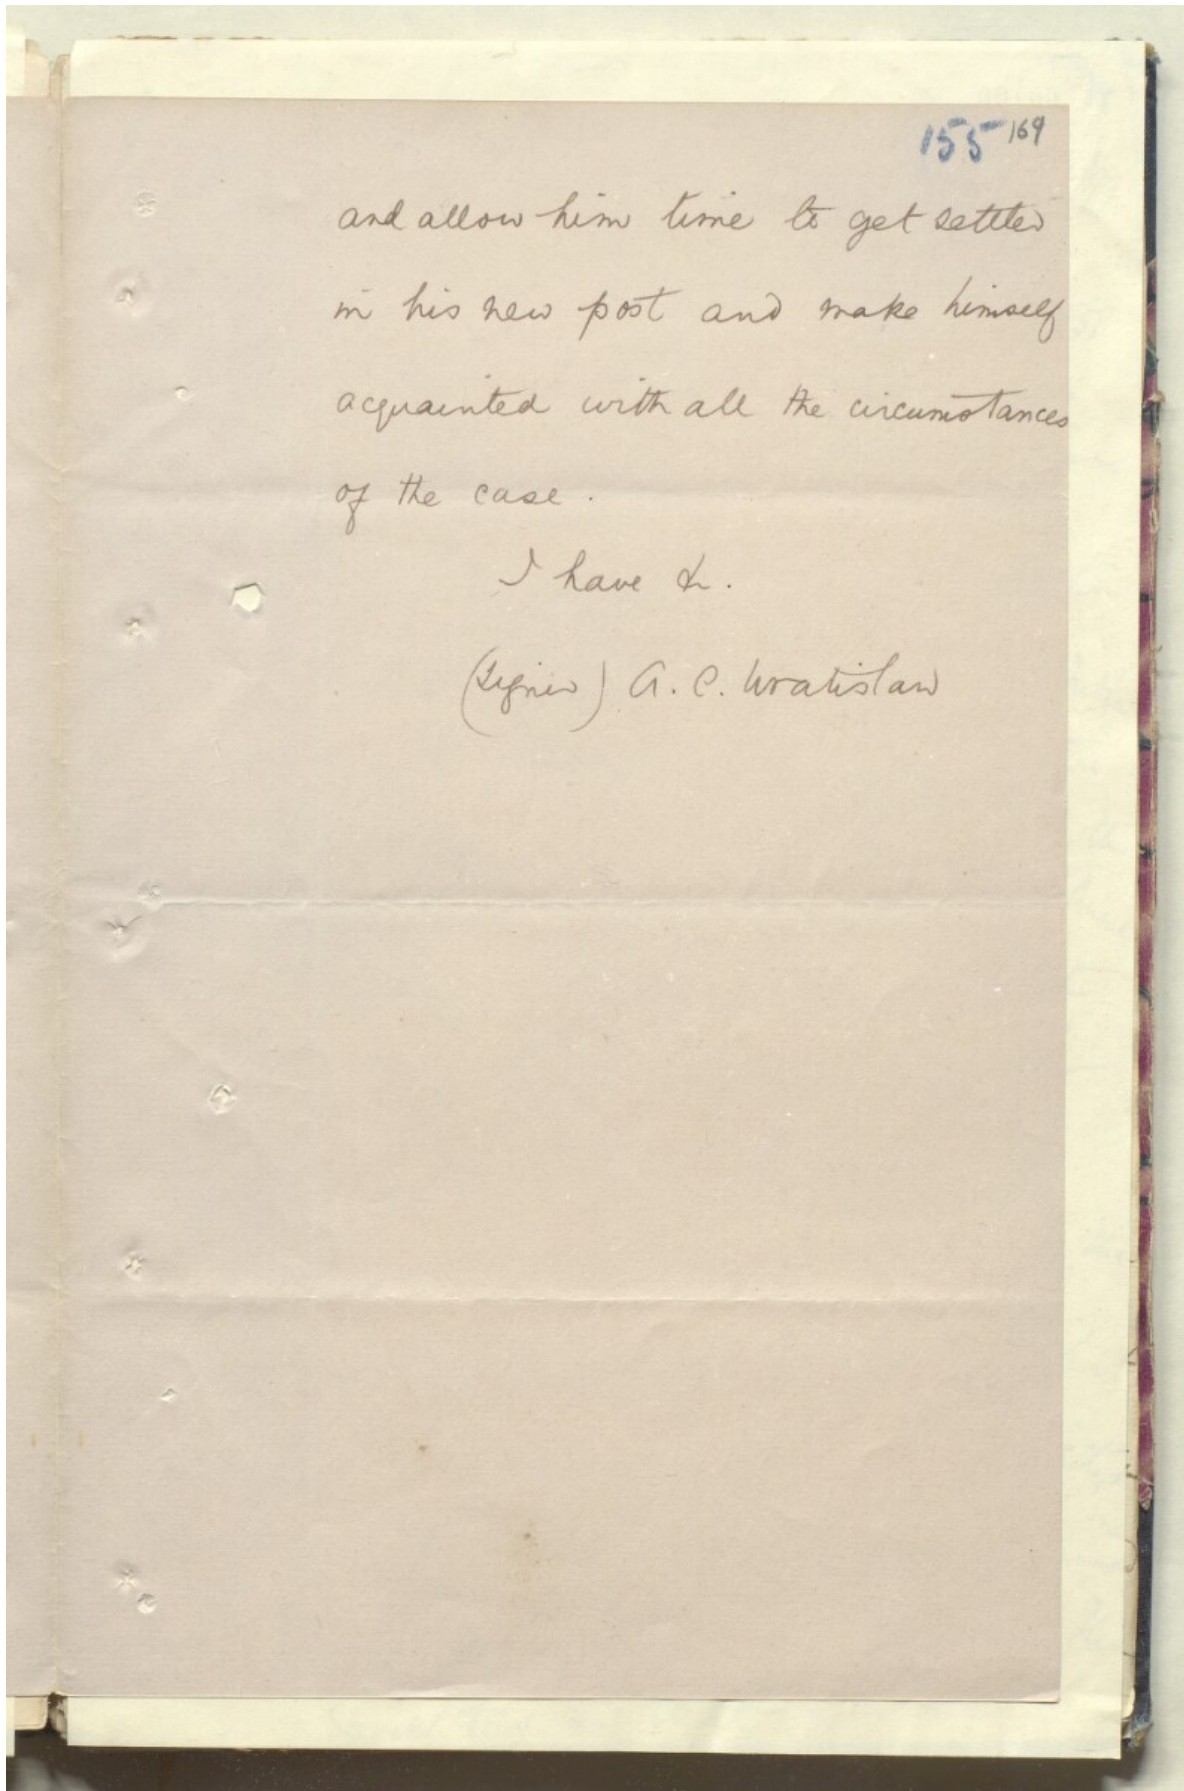 155 169
and allow him time to get settled
in his new post and make himself
acquainted with all the circumstances
of the case.
I have &.
(Signed) A. C. Wratislaw